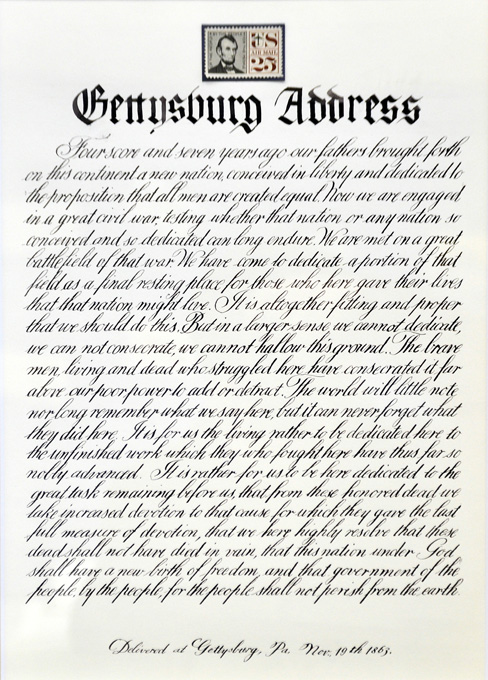 US
AIR MAIL
25
Gettysburg Address
Four score and seven years ago our fathers brought forth
on this continent a new nation, conceived in liberty and dedicated to
the proposition that all men are created equal. Now we are engaged
in a great civil war, testing whether that nation or any nation so
conceived and so dedicated can long endure. We are met on a great
battlefield of that war. We have come to dedicate a portion of that
field as a final resting place for those who here gave their lives
that that nation might live. It is altogether fitting and proper
that we should do this. But in a larger sense, we cannot dedicate,
we can not consecrate, we cannot hallow this ground. The brave
men, living and dead who struggled here have consecrated it far
above our poor power to add or detract. The world will little note
nor long remember what we say here, but it can never forget what
they did here. It is for us the living rather to be dedicated here to
the unfinished work which they who fought here have thus far so
nobly advanced. It is rather for us to be here dedicated to the
great task remaining before us, that from these honored dead we
take increased devotion to that cause for which they gave the last
full measure of devotion, that we here highly resolve that these
dead shall not have died in vain, that this nation under God
shall have a new birth of freedom, and that government of the
people, by the people, for the people shall not perish from the earth
Delivered at Gettysburg, Pa. Nov. 19th 1863.